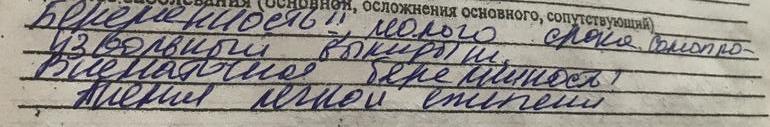 заболевания (основной, осложнения основного, сопутствующий)
Беременность!! малого срока. Самопро-
извольный выкидыш.
Внематочная беременность!
Анемия легкой степени